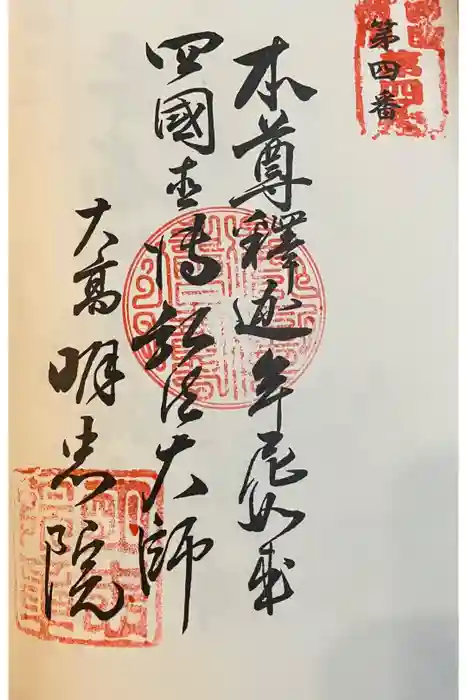 第四番
本尊釋迦牟尼如来
四國直傳弘法大師
大高
明忠院